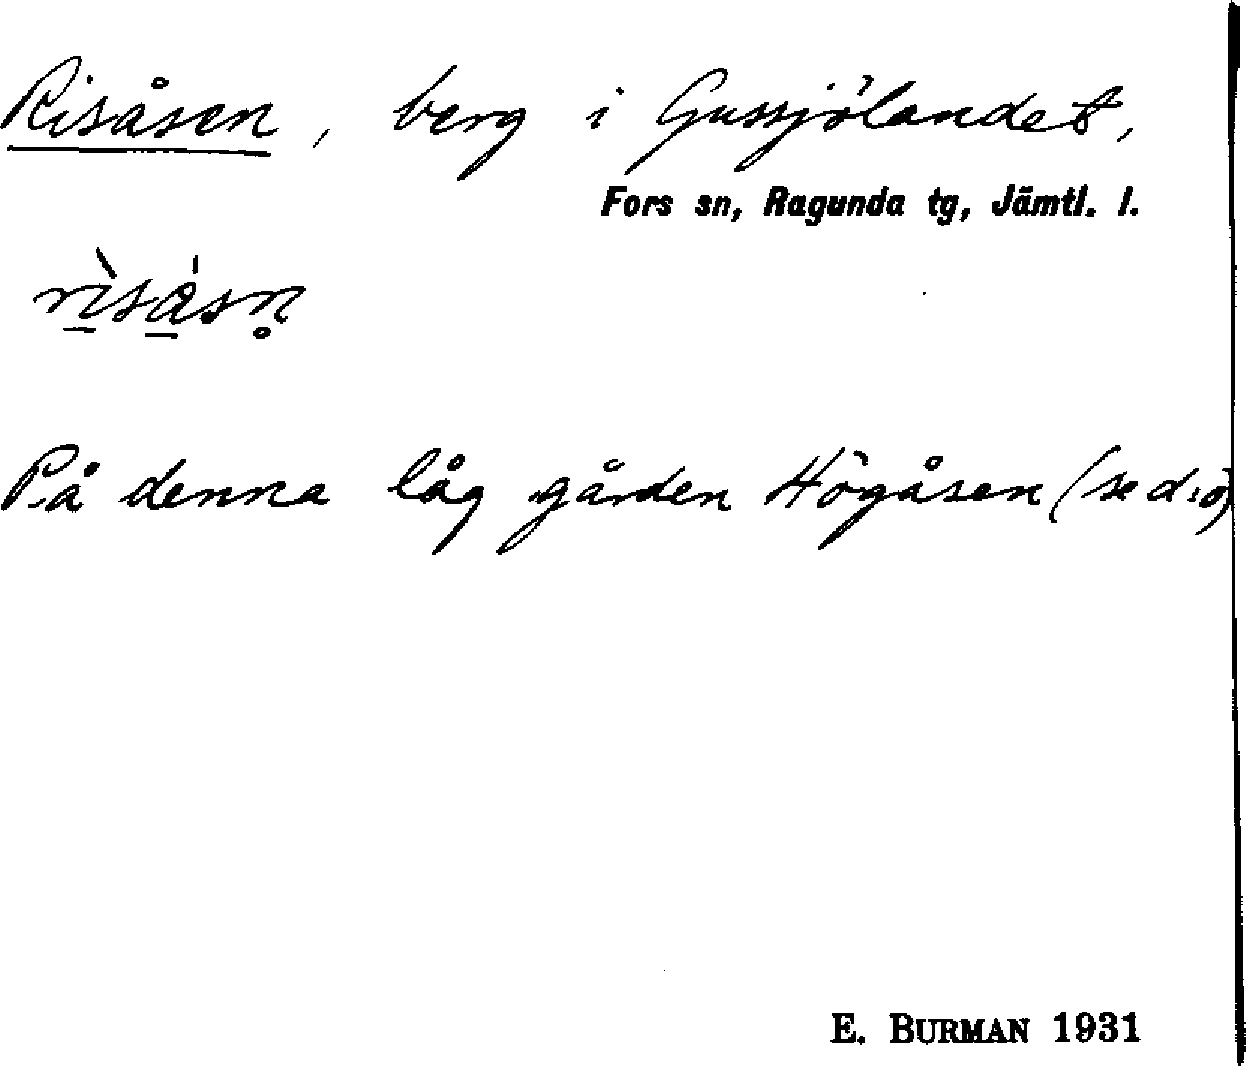 Risåsen, berg i Gussjölandet,
Fors sn, Ragunda tg, Jämtl. l.
På denna låg gården Högåsen (se d:o)
E. BURMAN 1931